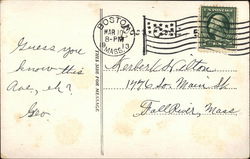 BOSTON
MAR 17
8-PM
MASS.
THIS SIDE FOR MESSAGE
Guess you
know this
one, eh?
Geo.
Herbert Dalton
1476 So. Main St
Fall River, Mass